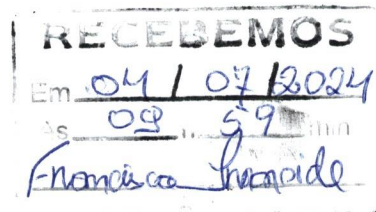 RECEBEMOS
Em 04 / 07 / 2024
às 09 h 59 min
Francisca